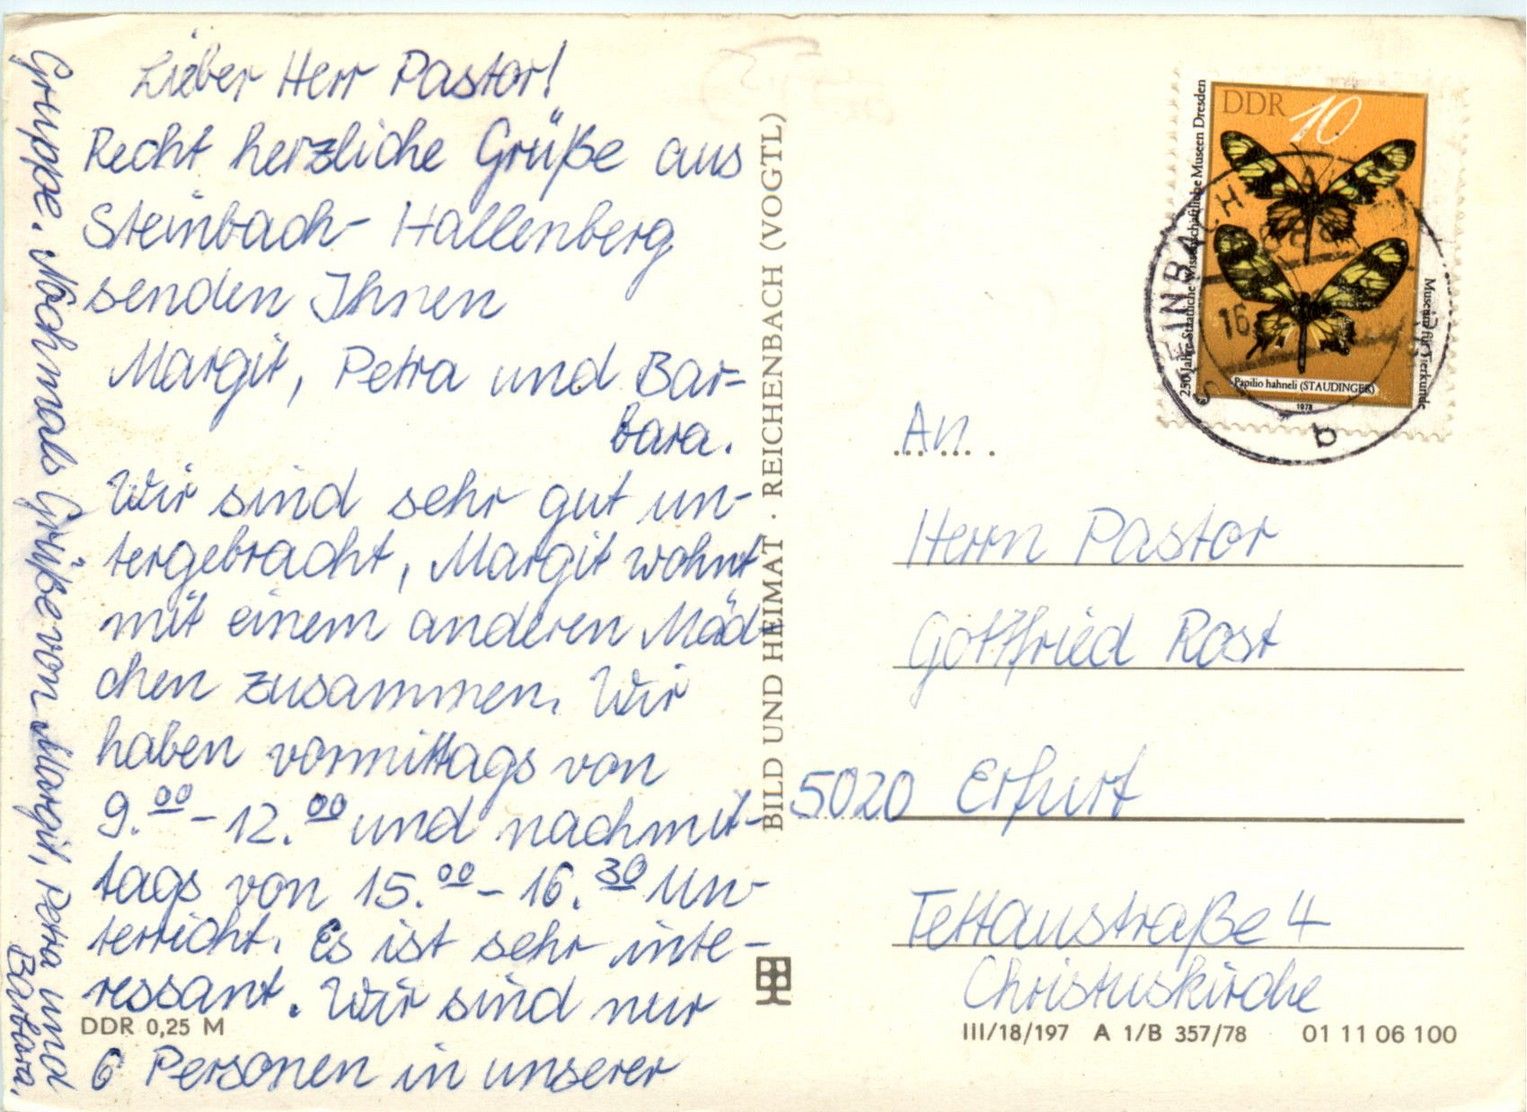 Lieber Herr Pastor!
Recht herzliche Grüße aus
Steinbach-Hallenberg
senden Ihnen
Margit, Petra und Bar-
bara.
Wir sind sehr gut un-
tergebracht, Margit wohnt
mit einem anderen Mäd-
chen zusammen. Wir
haben vormittags von
9.00 - 12.00 und nachmit-
tags von 15.00 - 16.30 Un-
terricht. Es ist sehr inte-
ressant. Wir sind nur
6 Personen in unserer
Gruppe. Nochmals Grüße von Margit, Petra und
Barbara.
DDR 0,25 M
BILD UND HEIMAT · REICHENBACH (VOGTL)
DDR 10
250 Jahre Staatliche Wissenschaftliche Museen Dresden
Museum für Tierkunde
Papilio hahneli (STAUDINGER)
1978
STEINBACH-HA
16
b
An
Herrn Pastor
Gottfried Rost
5020 Erfurt
Tettaustraße 4
Christuskirche
III/18/197 A 1/B 357/78 01 11 06 100